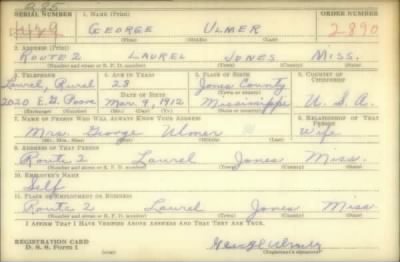 285
SERIAL NUMBER 1. NAME (Print) ORDER NUMBER
1129 GEORGE ULMER 2890
(First) (Middle) (Last)
2. ADDRESS (Print)
ROUTE 2 LAUREL JONES MISS.
(Number and street or R. F. D. number) (Town) (County) (State)
3. TELEPHONE 4. AGE IN YEARS 5. PLACE OF BIRTH 6. COUNTRY OF CITIZENSHIP
Laurel, Rural 28 Jones County
DATE OF BIRTH (Town or county)
2020 Mar. 9, 1912 Mississippi U. S. A.
(Exchange) (Number) (Mo.) (Day) (Yr.) (State or country)
7. NAME OF PERSON WHO WILL ALWAYS KNOW YOUR ADDRESS 8. RELATIONSHIP OF THAT PERSON
Mrs. George Ulmer Wife
(Mr., Mrs., Miss) (First) (Middle) (Last)
9. ADDRESS OF THAT PERSON
Route 2 Laurel Jones Miss.
(Number and street or R. F. D. number) (Town) (County) (State)
10. EMPLOYER'S NAME
Self
11. PLACE OF EMPLOYMENT OR BUSINESS
Route 2 Laurel Jones Miss
(Number and street or R. F. D. number) (Town) (County) (State)
I AFFIRM THAT I HAVE VERIFIED ABOVE ANSWERS AND THAT THEY ARE TRUE.
REGISTRATION CARD
D. S. S. Form 1 George Ulmer
(Registrant's signature)